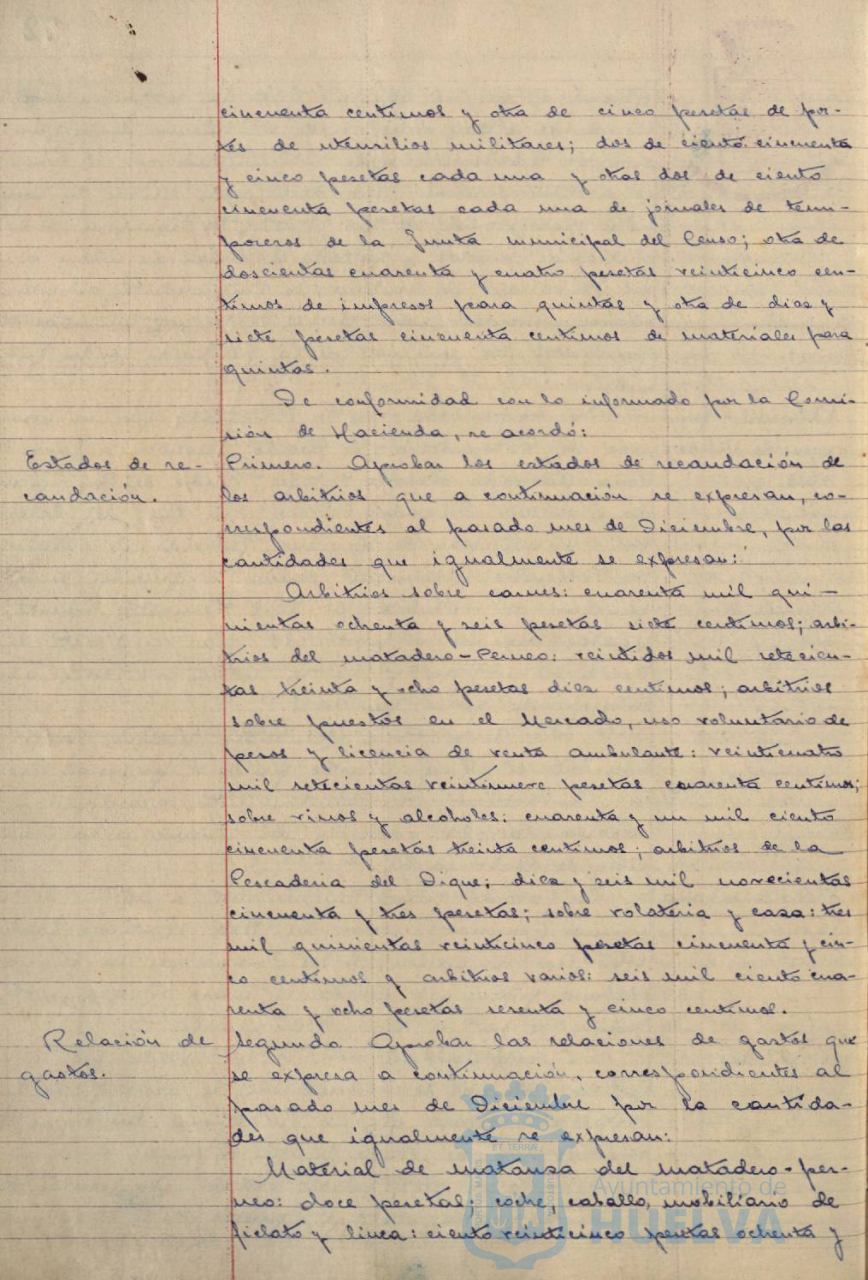 cincuenta centimos y otra de cinco pesetas de por-
tes de utensilios militares; dos de ciento cincuenta
y cinco pesetas cada una y otras dos de ciento
cincuenta pesetas cada una de jornales de tem-
poreros de la Junta municipal del Censo; otra de
doscientas cuarenta y cuatro pesetas veinticinco cen-
timos de impresos para quintas y otra de diez y
siete pesetas cincuenta centimos de materiales para
quintas.
De conformidad con lo informado por la Comi-
sión de Hacienda, se acordó:
Estados de re-
caudación.
Primero. Aprobar los estados de recaudación de
los arbitrios que a continuación se expresan, co-
rrespondientes al pasado mes de Diciembre, por las
cantidades que igualmente se expresan:
Arbitrios sobre carnes: cuarenta mil qui-
nientas ochenta y seis pesetas siete centimos; arbi-
trios del matadero-Perneo: veintidos mil setecien-
tas treinta y ocho pesetas diez centimos; arbitrios
sobre puestos en el Mercado, uso voluntario de
pesos y licencia de venta ambulante: veinticuatro
mil setecientas veintinueve pesetas cuarenta centimos;
sobre vinos y alcoholes: cuarenta y un mil ciento
cincuenta pesetas treinta centimos; arbitrios de la
Pescaderia del Dique; diez y seis mil novecientas
cincuenta y tres pesetas; sobre volateria y caza: tres
mil quinientas veinticinco pesetas cincuenta y cin-
co centimos y arbitrios varios: seis mil ciento cua-
renta y ocho pesetas sesenta y cinco centimos.
Relación de
gastos.
Segundo. Aprobar las relaciones de gastos que
se expresa a continuación, correspondientes al
pasado mes de Diciembre por la cantida-
des que igualmente se expresan:
Material de matansa del matadero-per-
neo: doce pesetas; coche, caballo, mobiliario de
fielato y linea: ciento veinticinco pesetas ochenta y
Ayuntamiento de
HUELVA